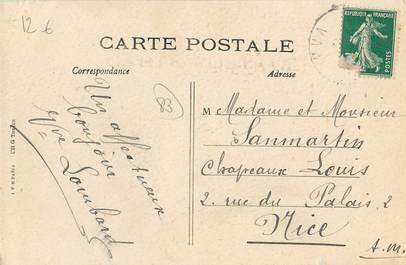 12 €
CARTE POSTALE
Correspondance
Adresse
RÉPUBLIQUE FRANÇAISE
POSTES
VAR
83
Un affectueux
bonjour
Vve Lombard
M Madame et Monsieur
Sanmartin
Chapeaux Louis
2. rue du Palais 2
Nice
A.M.